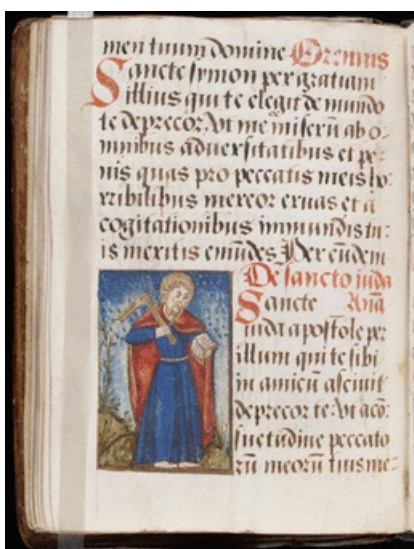 men tuum domine Oremus
Sancte symon per gratiam
illius qui te elegit de mundo
te deprecor vt me miserū ab o-
mnibus aduersitatibus et pe-
nis quas pro peccatis meis ho-
rribilibus mereor eruas et a
cogitationibus immundis tu-
is meritis emūdes Per eūdem
De sancto iuda
Sancte Anā
iuda apostole per
illum qui te sibi
in amicū asciuit
deprecor te vt acō-
suetudine peccato
rū meorū tuis me-